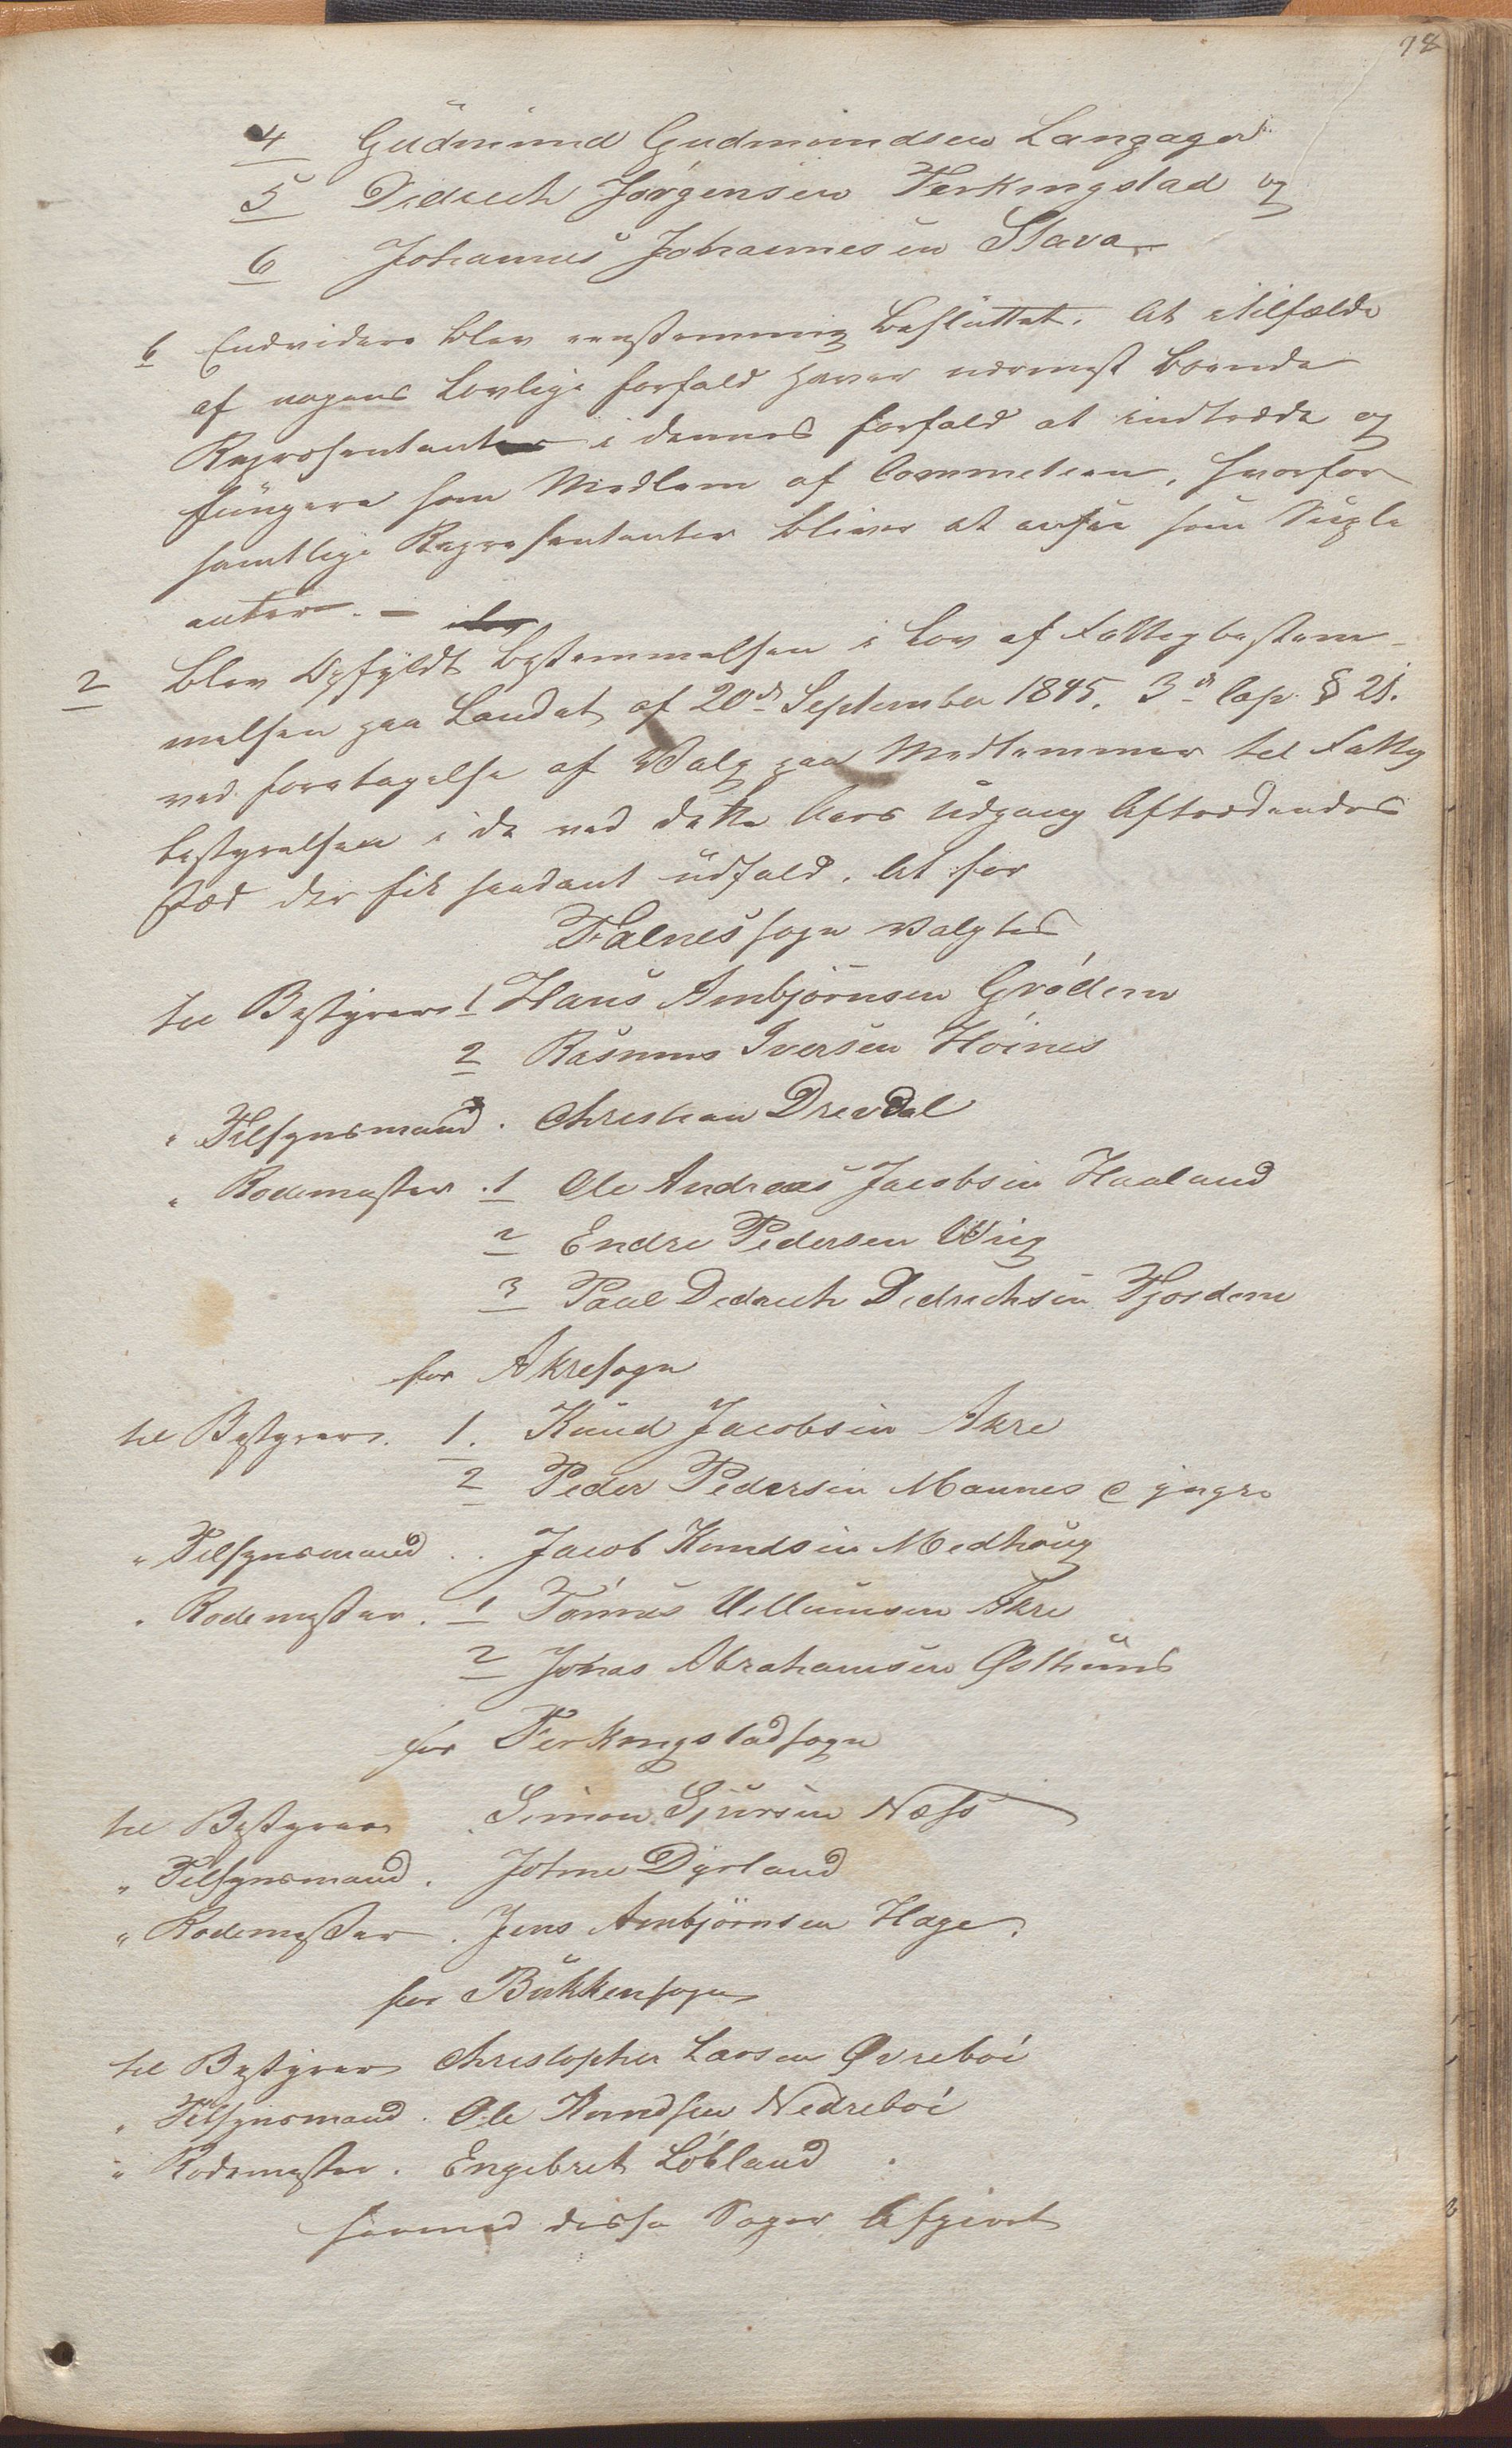 78
4 Gudmund Gudmundsen Langager
5 Didrich Jørgensen Ferkingstad og
6 Johannes Johannesen Stava
6 Endvidere blev eenstemmig besluttet. At i tilfælde
af nogens Lovlige forfald haver nermest boende
Representant i dennes forfald at indtræde og
fungere som Medlem af Commetieen, hvorfor
samtlige Representanter bliver at ansee som Suple
anter. –
2 Blev Opfyldt bestemmelsen i Lov af Fattigbestem-
melsen paa Landet af 20de September 1845. 3de Cap. § 21.
ved foretagelse af Valg paa Medlemmer til Fattig
bestyrelsen i de ved dette Aars Udgang Aftrædendes
sted der fik saadant udfald. At for
Falnes sogn valgtes
til Bestyrere 1 Hans Ambjörnsen Grødem
2 Rasmus Iversen Høines
" Tilsynsmand . Christian Drevdal
" Rodemester . 1 Ole Andreas Jacobsen Haaland
2 Endre Pedersen Wiig
3 Paul Didrich Didrichsen Fjordem
for Akresogn
til Bestyrere. 1. Knud Jacobsen Akre
2 Peder Pedersen Mannes d yngre
" Tilsynsmand . . Jacob Knudsen Medhoug
" Rodemester . 1 Tomas Villumsen Akre
2 Jonas Abrahamsen Østhuus
for Ferkingstadsogn
til Bestyrer . Simon Sjursen Næss
" Tilsynsmand . Johne Dyrland
" Rodemester . Jens Ambjörnsen Hage.
for Bukkensogn
til Bestyrer Christopher Larsen Øvrebøi
" Tilsynsmand . Ole Knudsen Nedrebøi
" Rodemester . Engebret Løkland .
hermed disse Sager Afgivet